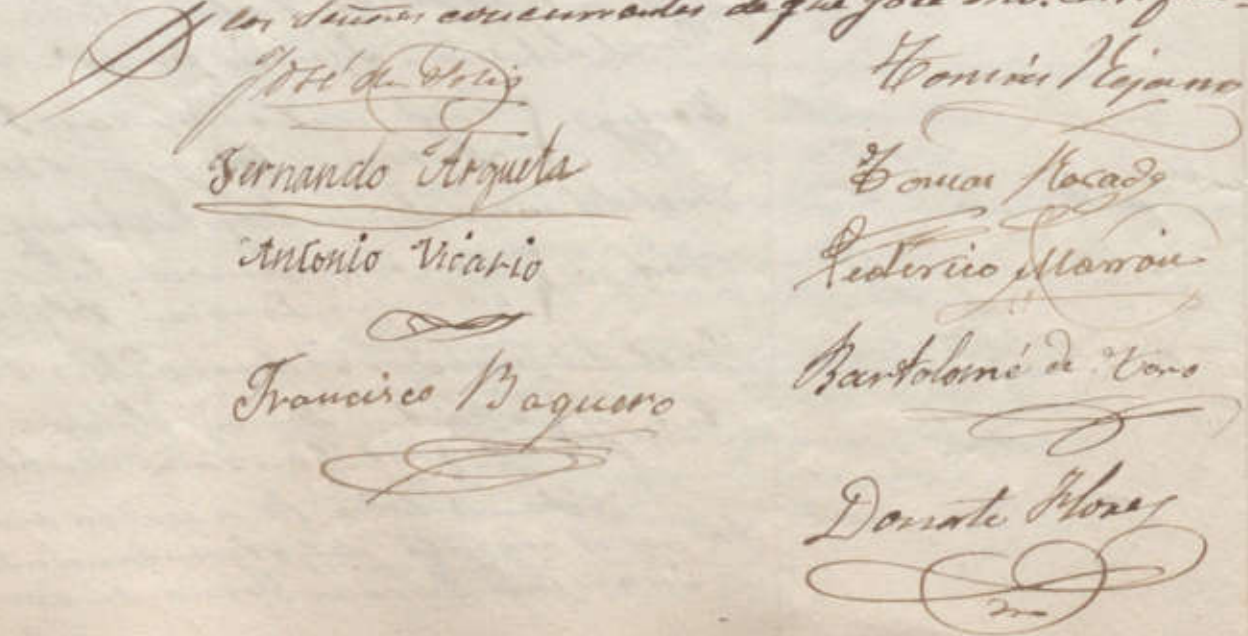 los Señores concurrentes de que yo el Srio. Certifico.
José de Solis
Fernando Argueta
Antonio Vicario
Francisco Baquero
Tomás Rejano
Tomas Rosado
Federico Marron
Bartolomé de Toro
Donato Flores